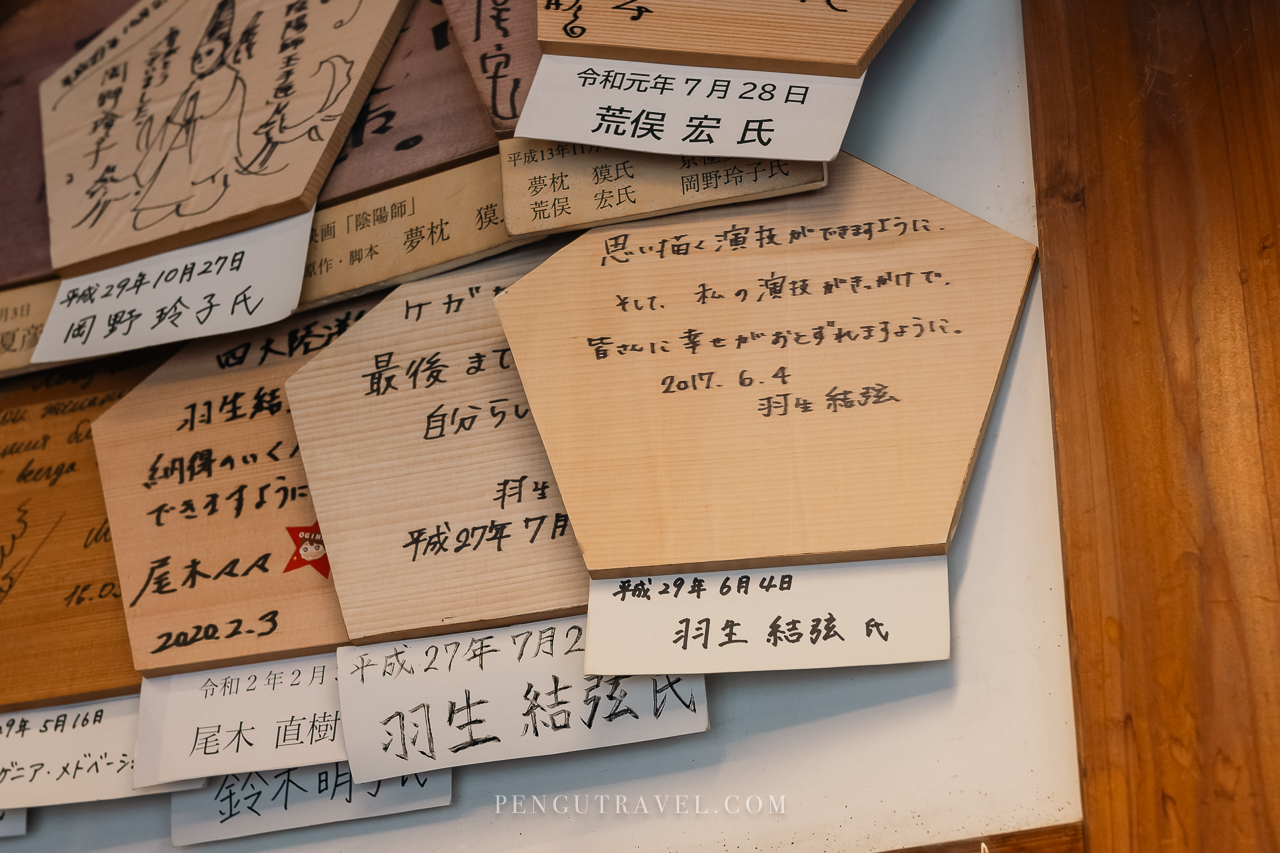 陰陽師玉手匣
ありがとう
ございました
岡野玲子
平成29年10月27日
岡野 玲子 氏
令和元年 7月28日
荒俣 宏 氏
平成13年11月
夢枕 獏氏
荒俣 宏氏
岡野玲子氏
映画「陰陽師」
原作・脚本 夢枕 獏
月3日
夏彦
思い描く演技ができますように.
そして、私の演技がきっかけで、
皆さんに幸せがおとずれますように。
2017. 6. 4
羽生 結弦
平成 29年 6月 4日
羽生 結弦 氏
ケガ
最後まで
自分らし
羽生
平成27年 7月
平成 27年 7月2
羽生 結弦 氏
四大陸
羽生結
納得のいく
できますように
尾木々々
OGI
2020.2.3
令和2年2月
尾木 直樹
鈴木明子氏
всегда
16.05
9年 5月16日
ゲニア・メドベージ
PENGUTRAVEL.COM